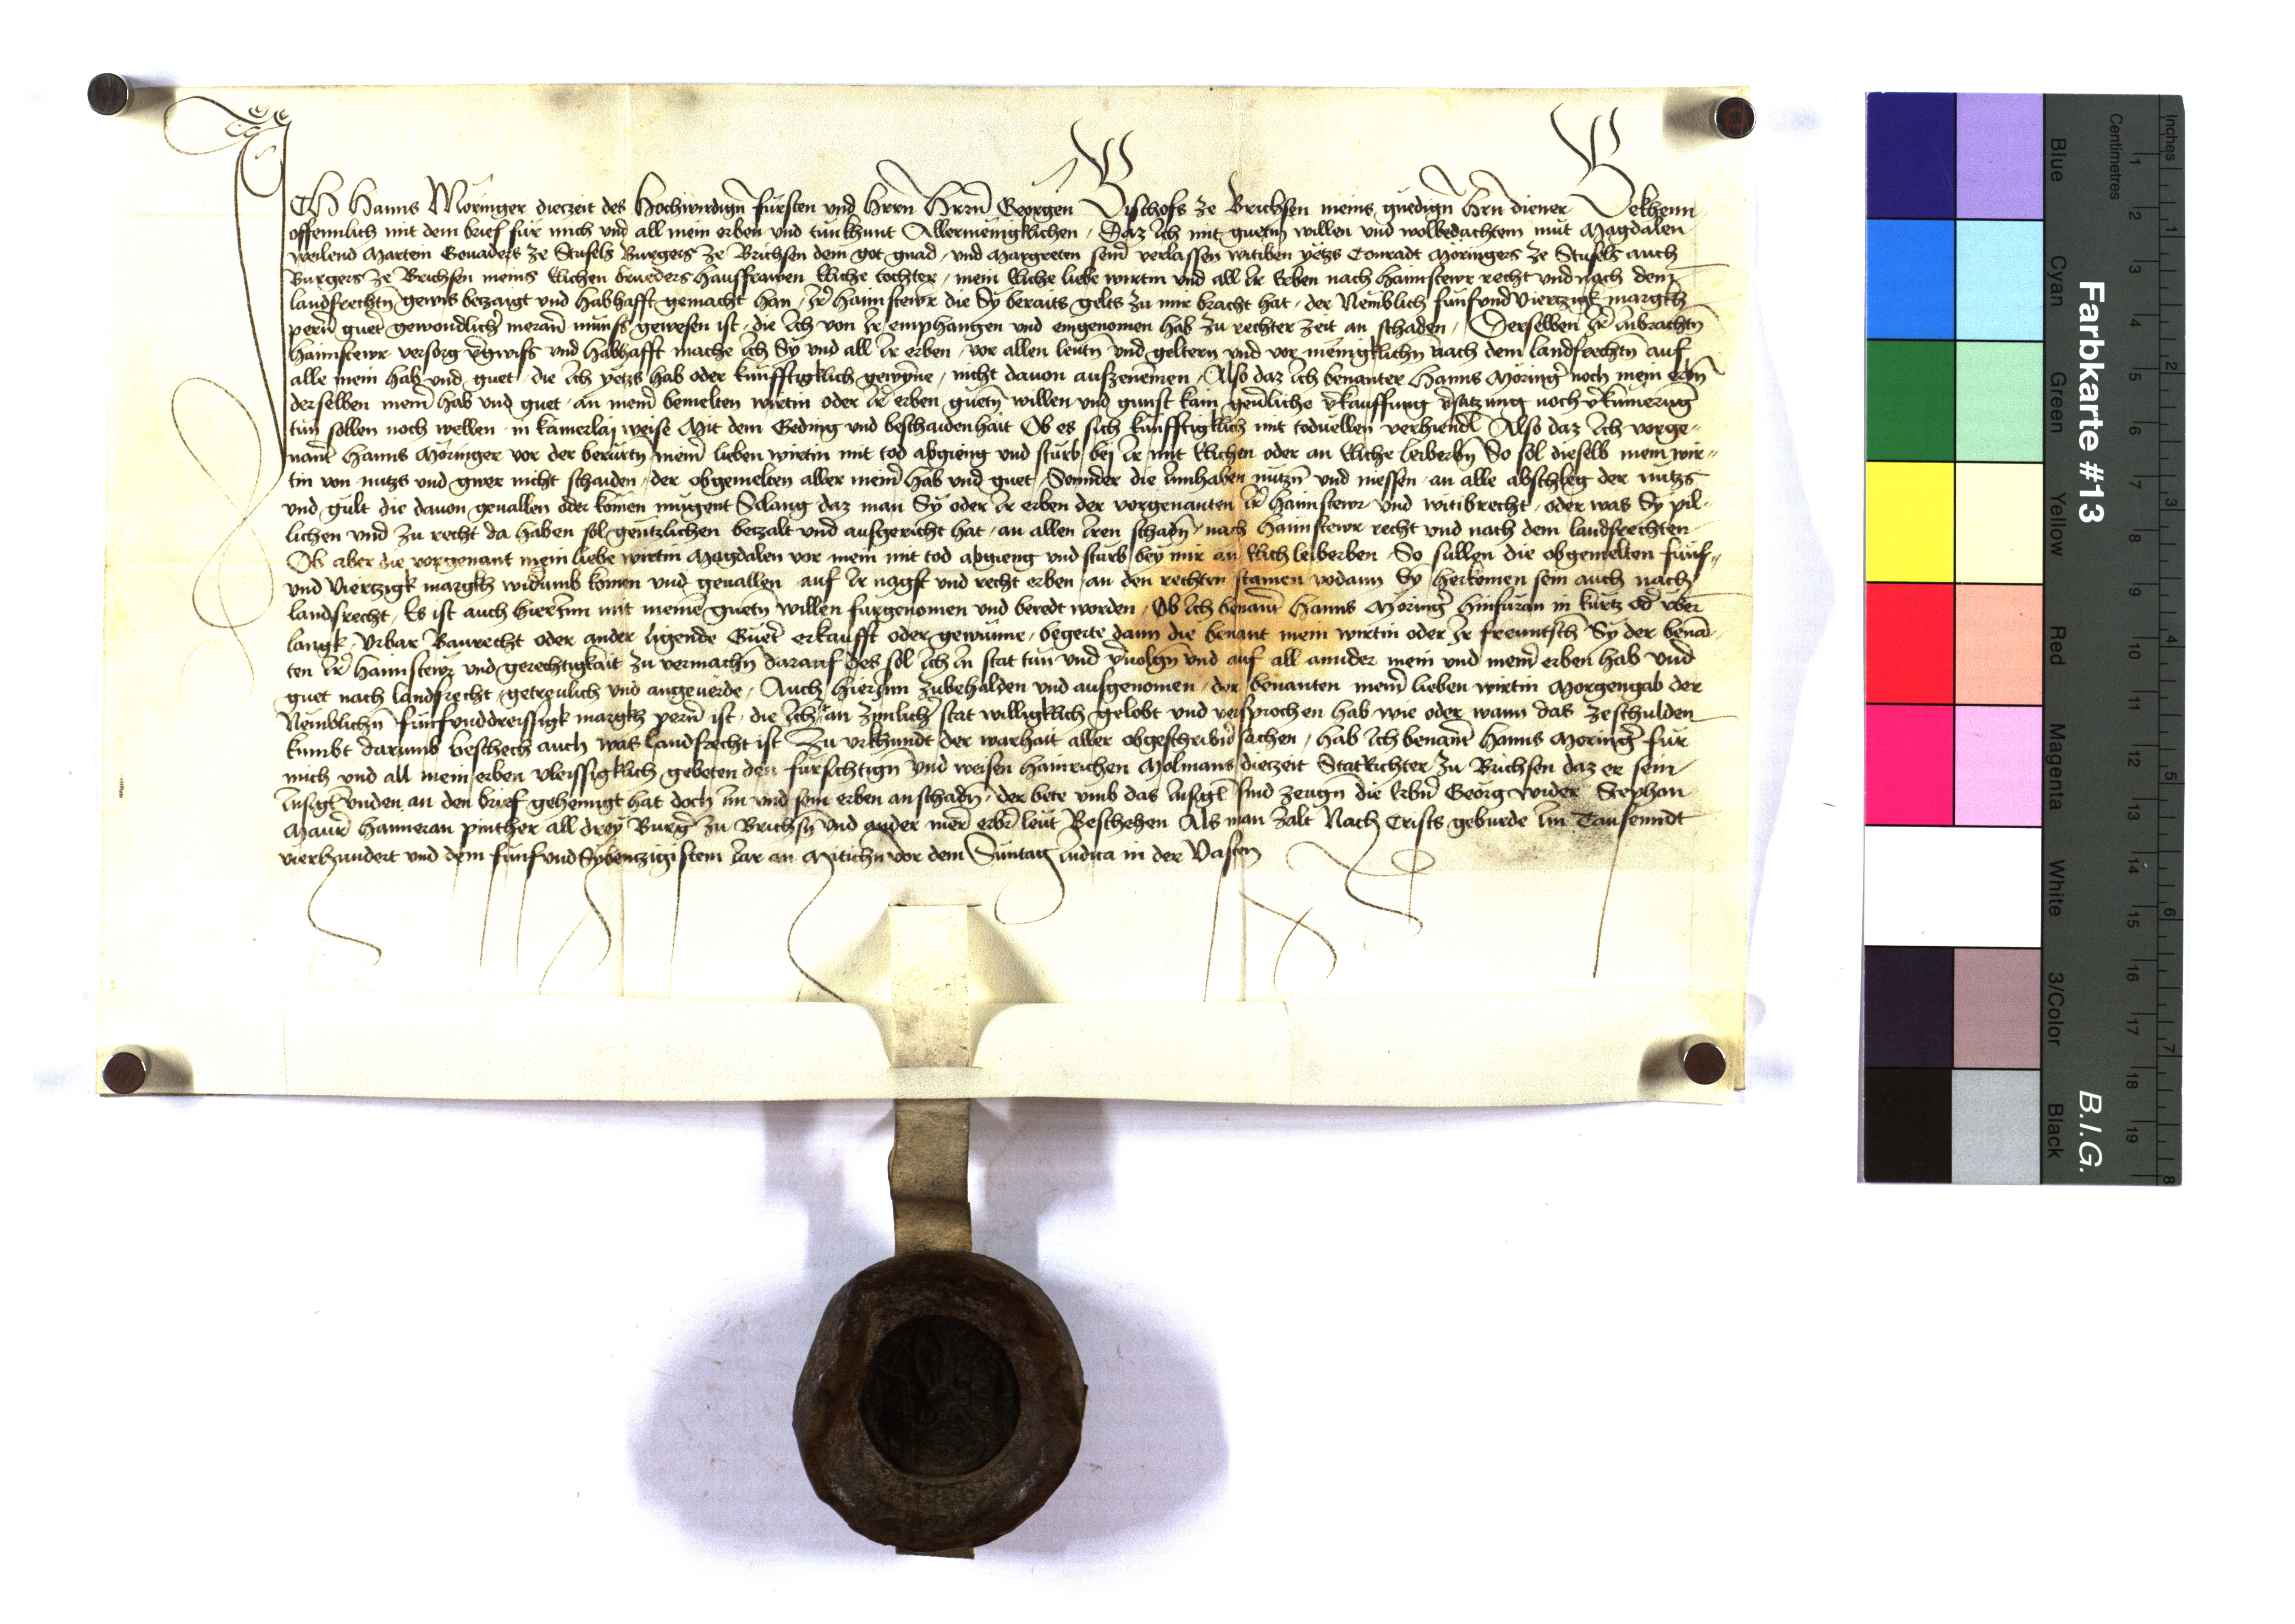 ICh Hanns Möringer diezeit des Hochwirdign̄ fürsten und Hrrn Hrrn̄ Georgen Bischofs ze Brichsen meins gnedign̄ Hrn̄ diener Bekhenn
offennlich mit dem brief für mich vnd all mein erben vnd tun khunt Allermenigklichen, Daz Ich mit guetn̄ willen vnd wolbedachtem müt Magdalen
weilend Martein Geuaders ze Stufels Burgers ze Brichsen dem got gnad, vnd Margreten sein̄ verlassen witiben yetzs Conradt Möringers ze Stufels auch
Burgers ze Brichsen meins Elichen brueders Hausfrawen Eliche tochter, mein Eliche liebe wirtin vnd all Ir Erben nach haimstewr recht vnd nach dem
landsrechtn̄ gewis betzaigt vnd habhafft gemacht han, Irr̄ haimstewr die Sy beraits gelts zu mir bracht hat, der Nemblich funfvnd Viertzigk margkh
pern̄ guet̄ gewondlich̄ meran̄ münss gewesen ist, die Ich von Ir emphangen vnd eingenomen hab zu rechter zeit an schaden, Derselben Ir̄ Inbrachtn̄
haimstewr versorg v̄gwiss vnd habhafft mache Ich Sy vnd all Ir erben, vor allen leutn̄ vnd geltern vnd vor menigklichn̄ nach dem landsrechtn̄ auf
alle mein hab vnd guet, die Ich yetzs hab oder künfftigklich gewynne, nicht dauon aufzenemen, Also daz Ich benanter Hanns Mörinḡ noch mein erbn̄
derselben mein̄ hab vnd guet, an mein̄ bemelten wirtin oder Ir̄ erben guetn̄ willen vnd gunst kain geuerliche v̄kauffung v̄satzung noch v̄kümerung
tun sollen noch wellen, in kainerlay weise Mit dem Geding vnd beschaidenhait Ob es sich künfftigklich mit toduellen verhiendl Also daz Ich vorge-
nant̄ Hanns Möringer vor der berürtn̄ mein̄ lieben wirtin mit tod abgieng vnd sturb, bej Ir mit Elichen oder an Eliche leiberbn̄ So sol dieselb mein wir-
tin von nutzs vnd gwer nicht schaiden, der obgemelten aller mein̄ hab vnd guet, Sonnder die Innhaben nutzn̄ vnd niessen, an alle abschleg der nutzs
vnd gült die dauon geuallen oder komen mugent Solang daz man Sy oder Ir erben der vorgenanten Ir̄ haimstewr vnd witibrecht, oder was Sy pil-
lichen vnd zu recht da haben sol gentzlichen betzalt vnd ausgericht hat, an allen Iren schadn̄, nach haimstewr recht vnd nach dem landsrechten
Ob aber die vorgenant mein liebe wirtin Magdalen vor mein mit tod abgieng vnd sturb, bey mir an Elich leiberben, So sullen die obgemelten fünf-
vnd Viertzigk margkh widerumb komen vnd geuallen auf Ir nagst vnd recht erben, an den rechten stamen vodann Sy herkomen sein auch nach
landsrecht, Es ist auch hierInn mit meinē guetn̄ willen furgenomen vnd beredt worden, Ob Ich benant̄ Hanns Mörinḡ hinfuran in kurtz od̄ vber
langk, Vrbar Baurecht oder ander ligende Guet̄ erkaufft oder gewunne, begerte dann die benant mein wirtin oder Ir freuntsch Sy der benan-
ten Irr̄ haimstewr vnd gerechtigkait zu vermachn̄ darauf des sol Ich In stat tun vnd v̄uolgn̄ vnd auf all annder mein vnd mein̄ erben hab vnd
guet nach landsrecht getreulich vnd angeuerde, Auch hierInn zubehalden vnd ausgenomen, der benanten mein̄ lieben wirtin Morgengab der
Nemblichn̄ Fünfvnddreissigk margkh pern̄ ist, die Ich Ir an zymlich̄ stat willigklich gelobt vnd versprochen hab wie oder wann das zeschulden
kumbt darumb beschech auch was landsrecht ist Zu vrkhundt der warhait aller obgeschribn̄ sachen, hab Ich benant̄ Hanns Morinḡ für
mich vnd all mein erben vleissigklich gebeten den fürsichtign̄ vnd weisen Hainrichen Molmans diezeit StatRichter zu Brichsen daz er sein
Insigl vnden an den brief gehenngt hat doch Im vnd sein erben an schadn̄, der bete vmb das Insigl̄ sind zeugn̄ die Erbn̄ Georg Wider Stephan
Maur̄ Hanneran pinther all drey Burḡ zu Brichsn̄ vnd ander mer̄ erbr̄ leut Beschehen Als man zalt Nach Crists geburde Im Tausenndt
vierhundert vnd dem fünfvnd Sybentzigistem Iar an Mitichn̄ vor dem Suntag Iudica in der Vasten
Farbkarte #13
B.I.G.
Inches
Centimetres
Blue
Cyan
Green
Yellow
Red
Magenta
White
3/Color
Black
1 2 3 4 5 6 7 8 9 10 11 12 13 14 15 16 17 18 19
1 2 3 4 5 6 7 8